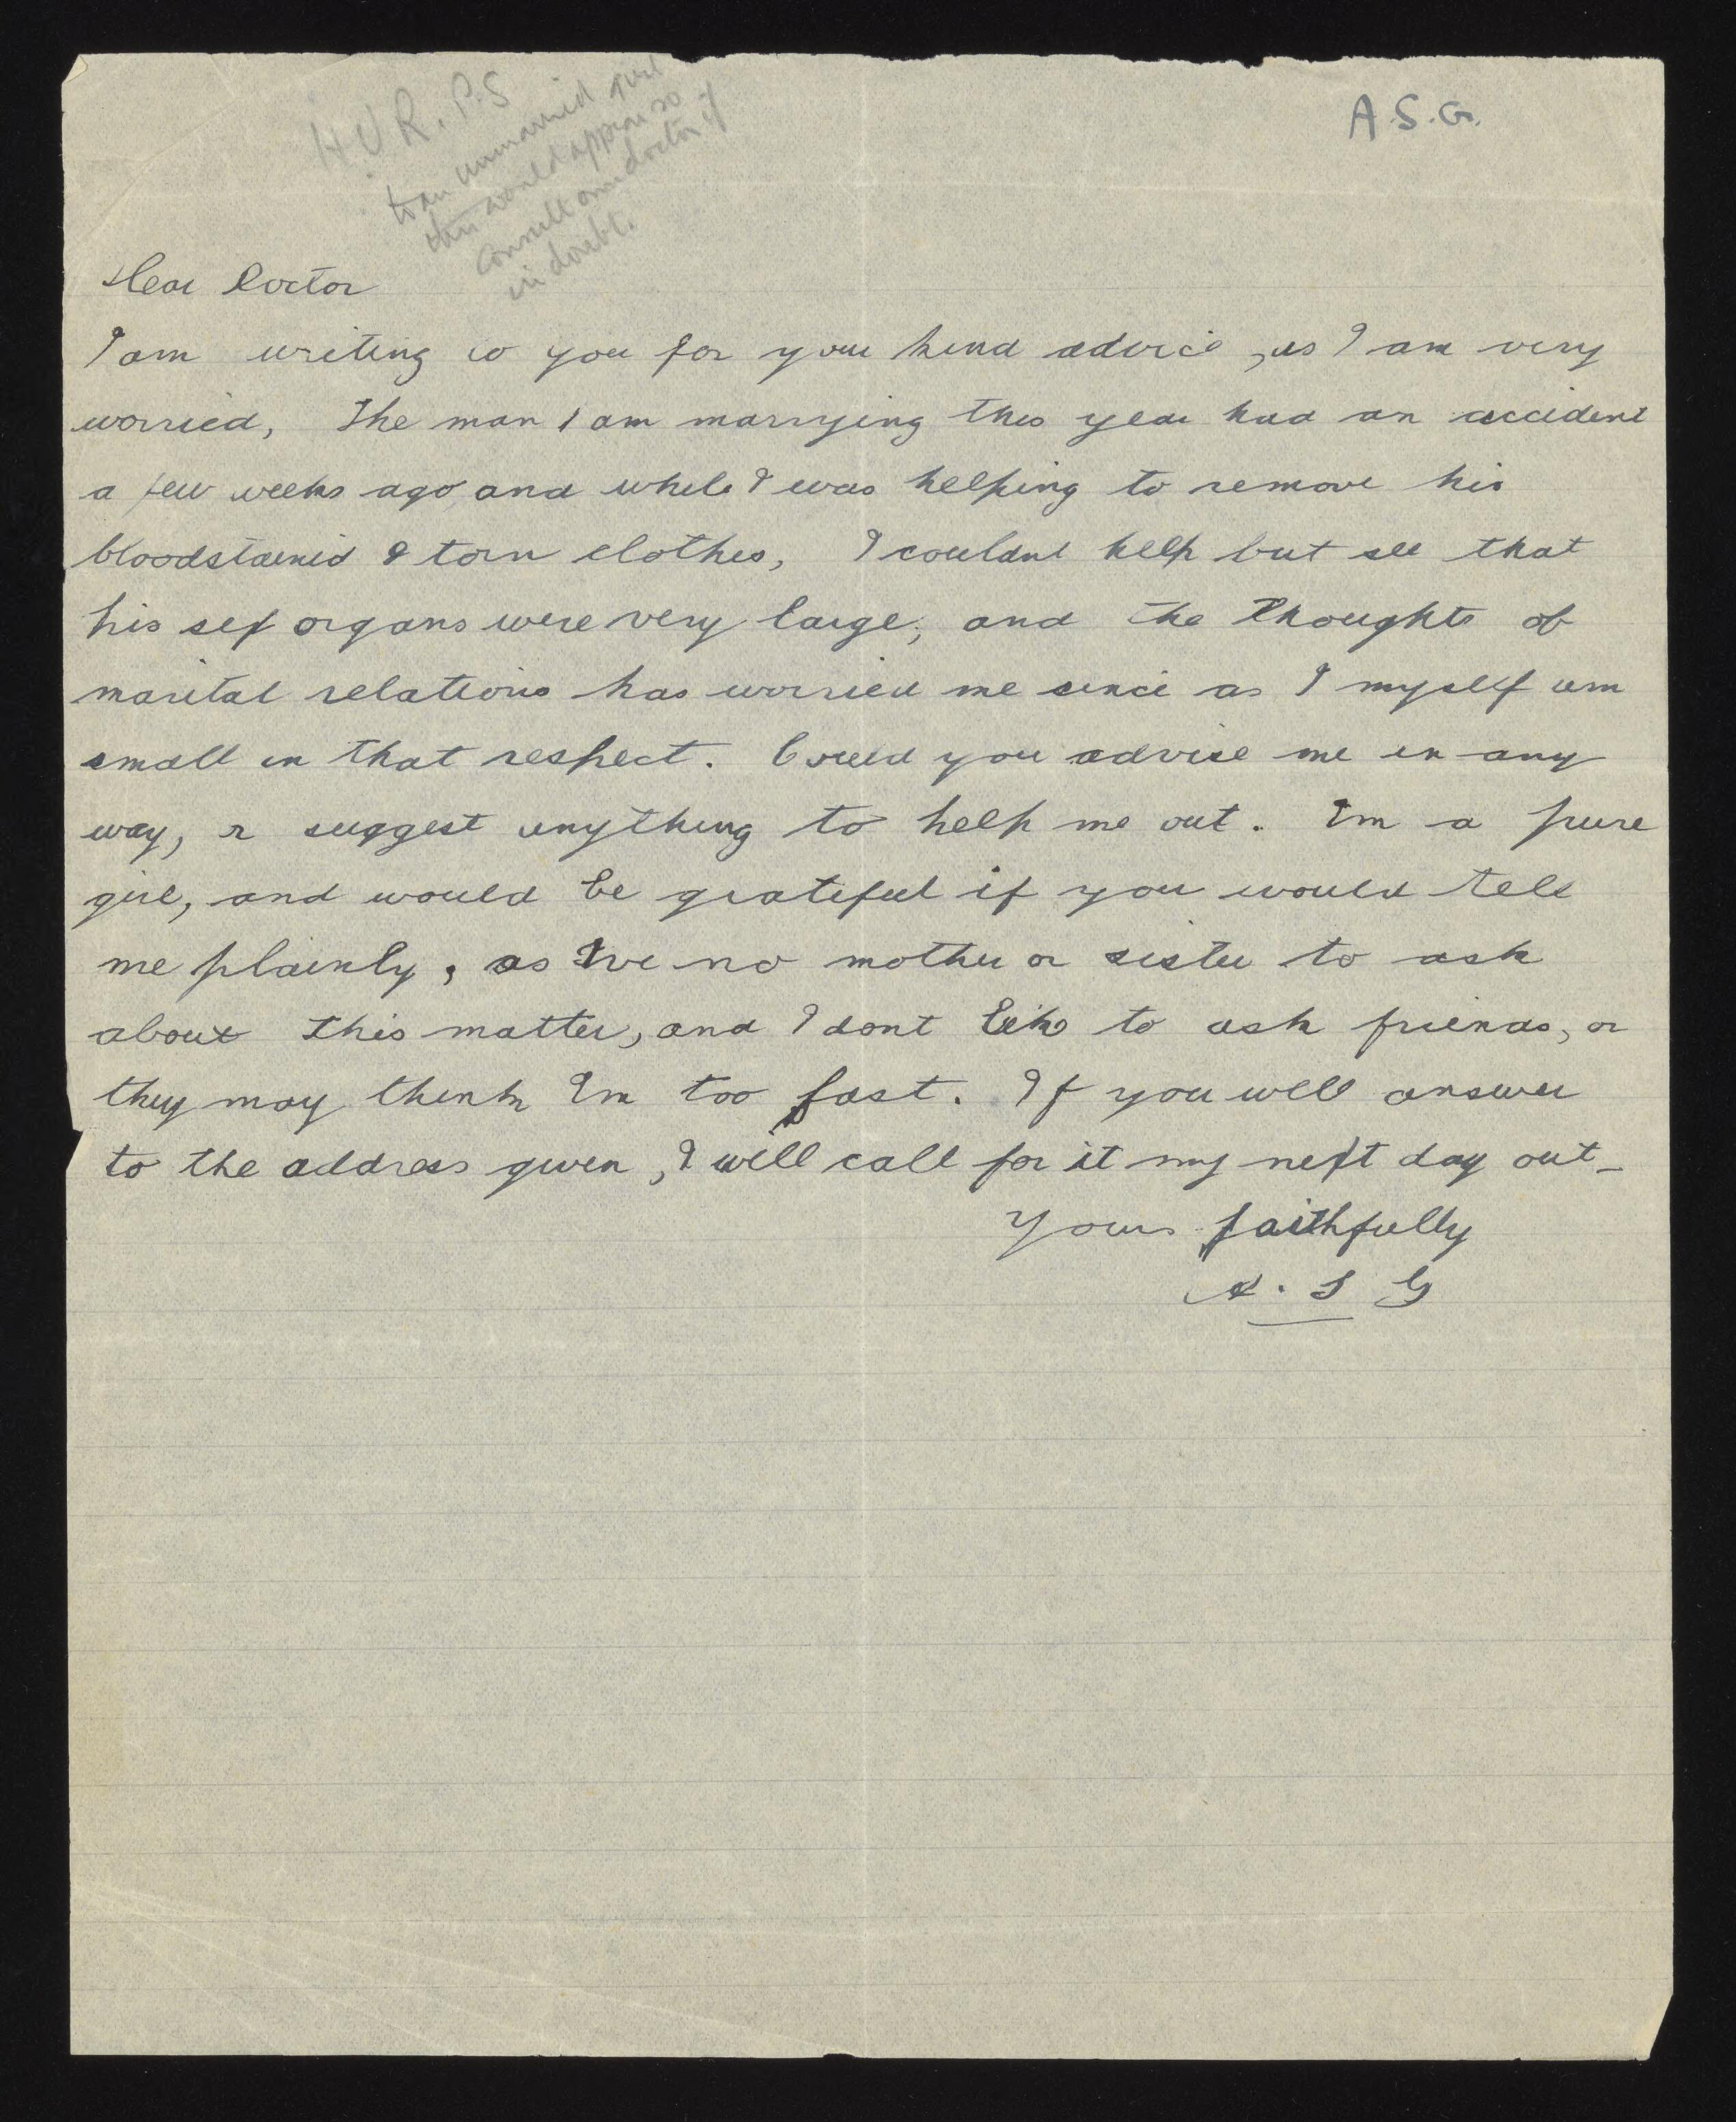 A.S.G.
H.U R. P.S
to an unmarried girl
this would appear so
consult own doctor if
in doubt.
Dear Doctor
I am writing to you for your kind advice, as I am very
worried, The man I am marrying this year had an accident
a few weeks ago, and while I was helping to remove his
bloodstained & torn clothes, I couldnt help but see that
his sex organs were very large; and the thoughts of
marital relations has worried me since as I myself am
small in that respect. Could you advise me in any
way, r suggest anything to help me out. Im a pure
girl, and would be grateful if you would tell
me plainly, as Ive no mother or sister to ask
about this matter, and I dont like to ask friends, or
they may think Im too fast. If you will answer
to the address given, I will call for it my next day out_
Yours faithfully
A. S G